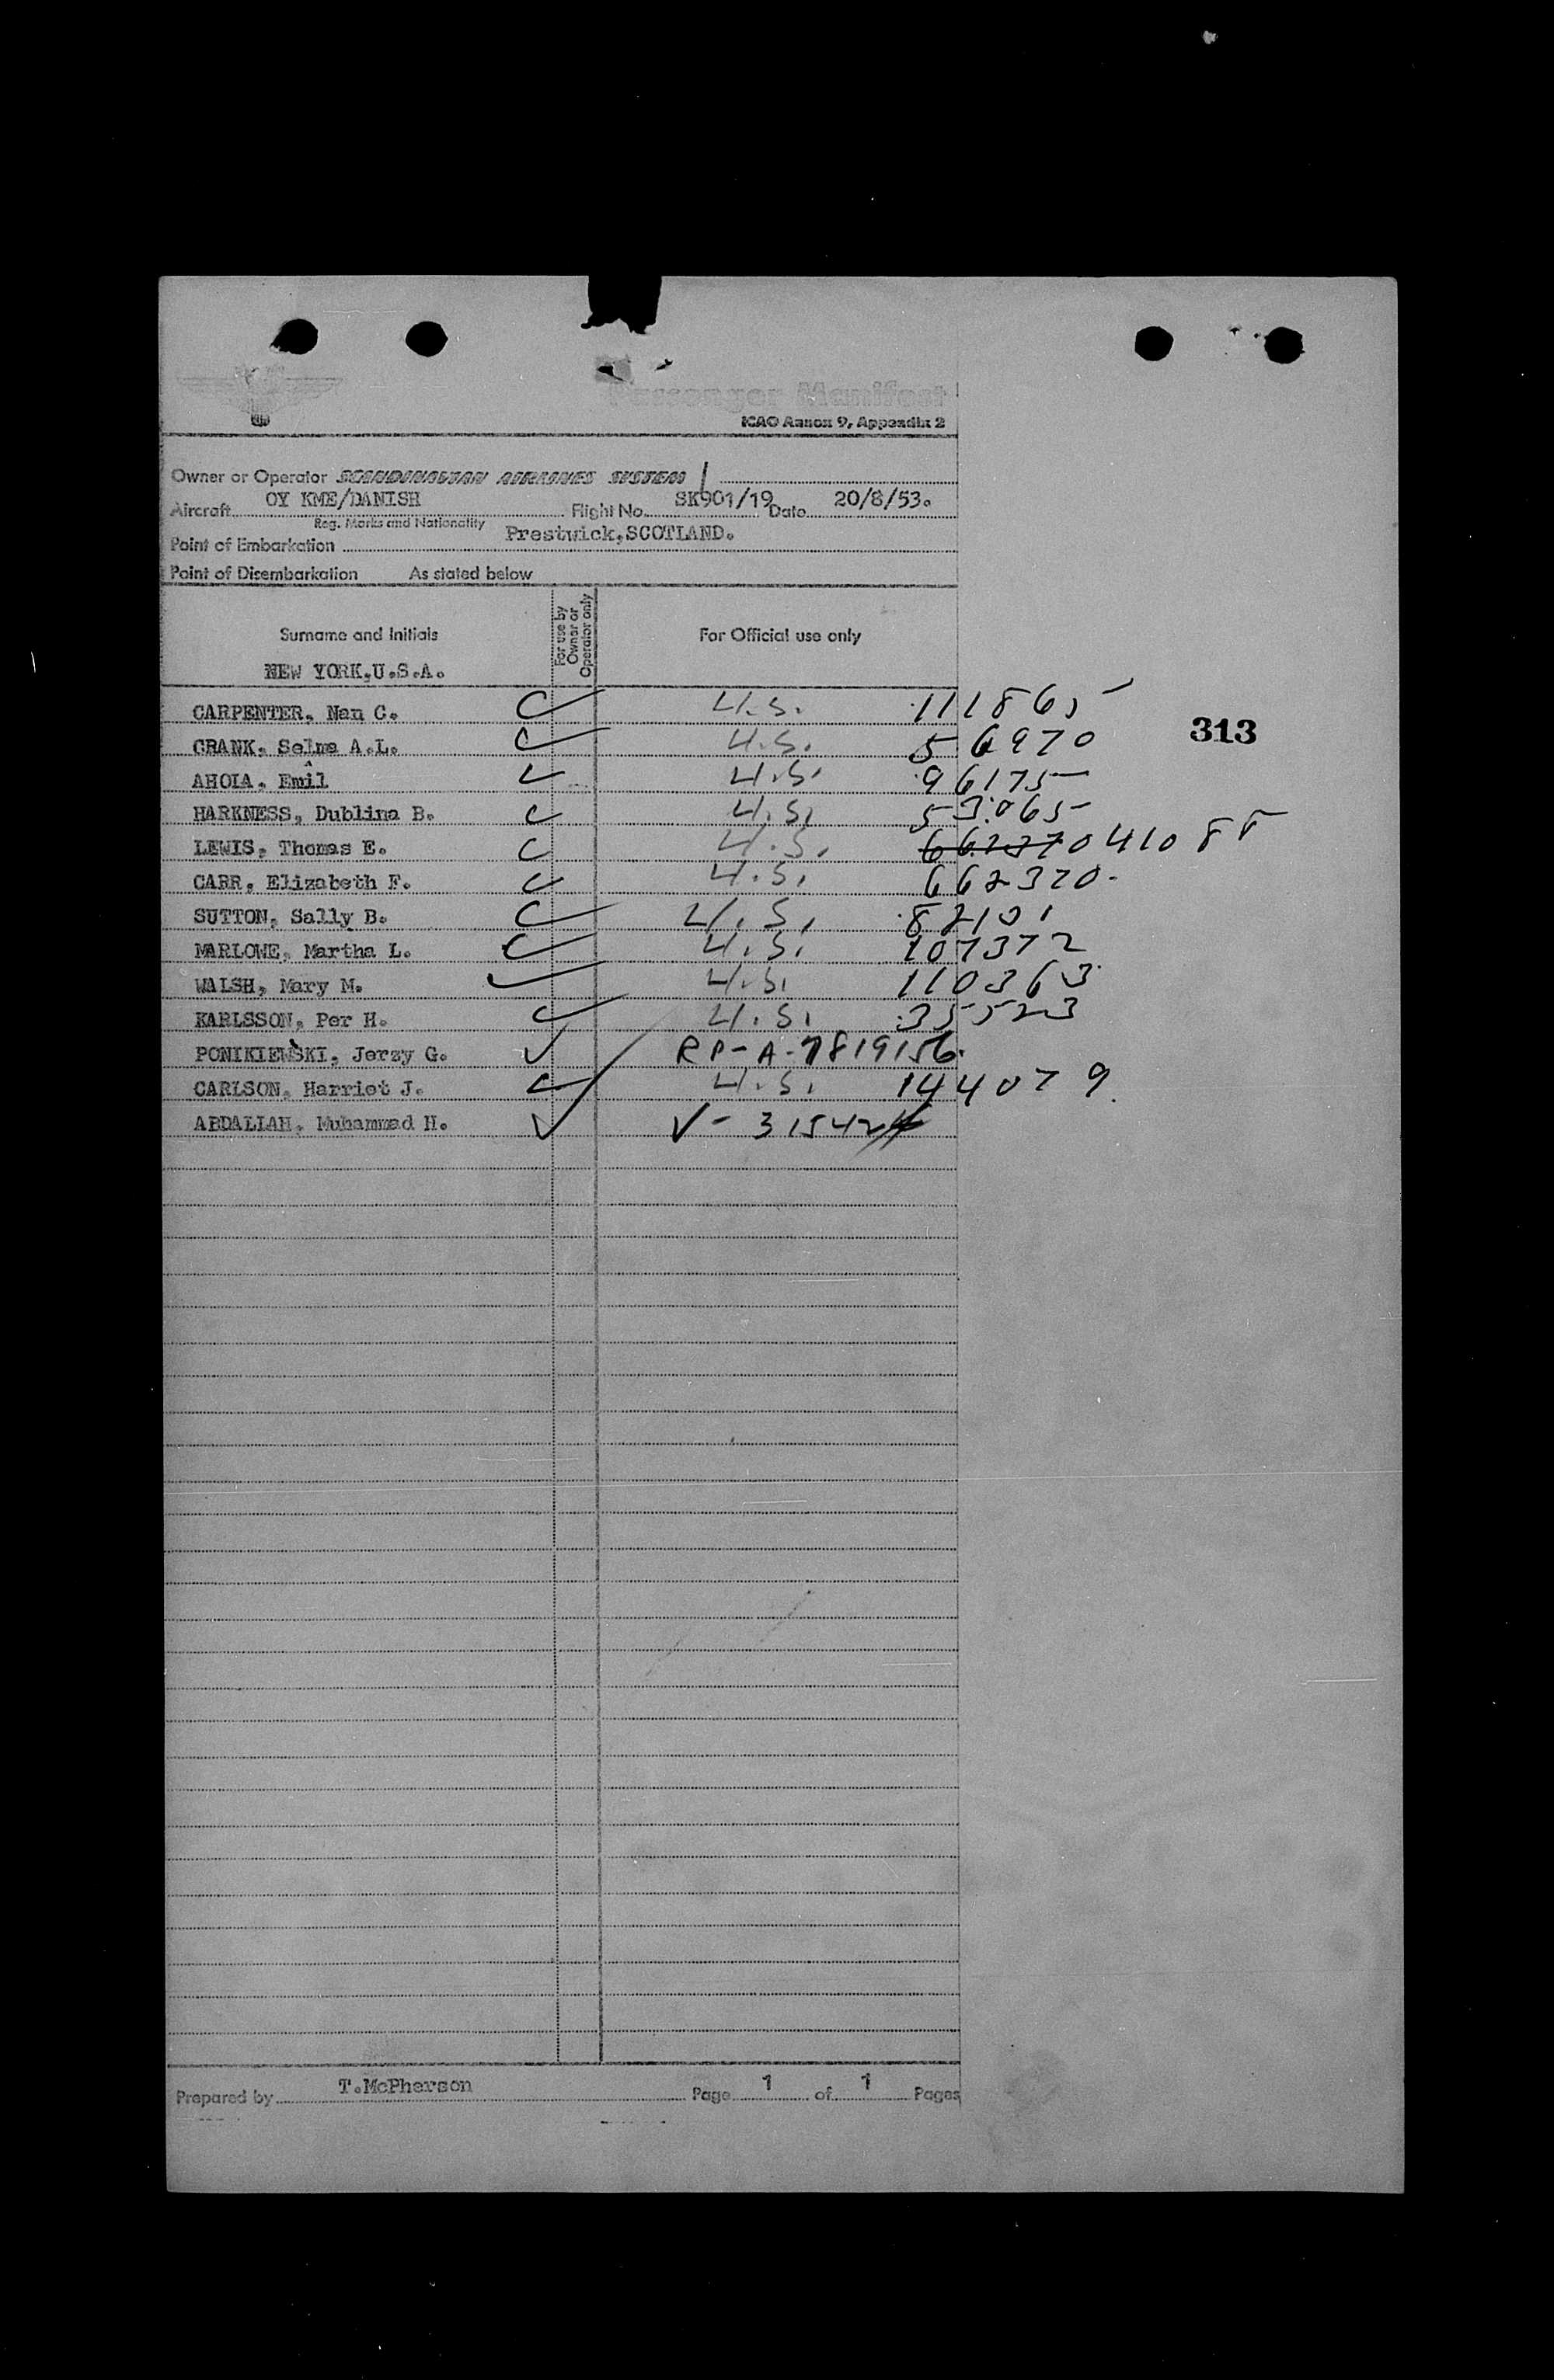 Passenger Manifest
ICAO Annex 9, Appendix 2
Owner or Operator SCANDINAVIAN AIRLINES SYSTEM
Aircraft OY KME/DANISH Flight No. SK901/19 Date 20/8/53.
Reg. Marks and Nationality
Point of Embarkation Prestwick,SCOTLAND.
Point of Disembarkation As stated below
Surname and Initials For use by Owner or Operator only For Official use only
NEW YORK,U.S.A.
CARPENTER, Nan C. U.S. 111865
313
CRANK, Selma A.L. U.S. 56970
AHOLA, Emil U.S. 96175
HARKNESS, Dublina B. U.S. 53065
LEWIS, Thomas E. U.S. 41088
CARR, Elizabeth F. U.S. 662370
SUTTON, Sally B. U.S. 82101
MARLOWE, Martha L. U.S. 107372
WALSH, Mary M. U.S. 110363
KARLSSON, Per H. U.S. 35523
PONIKIEWSKI, Jerzy G. RP-A-7819156
CARLSON, Harriet J. U.S. 144079
ABDALLAH, Muhammad H. V-315424
Prepared by T.McPherson Page 1 of 1 Pages